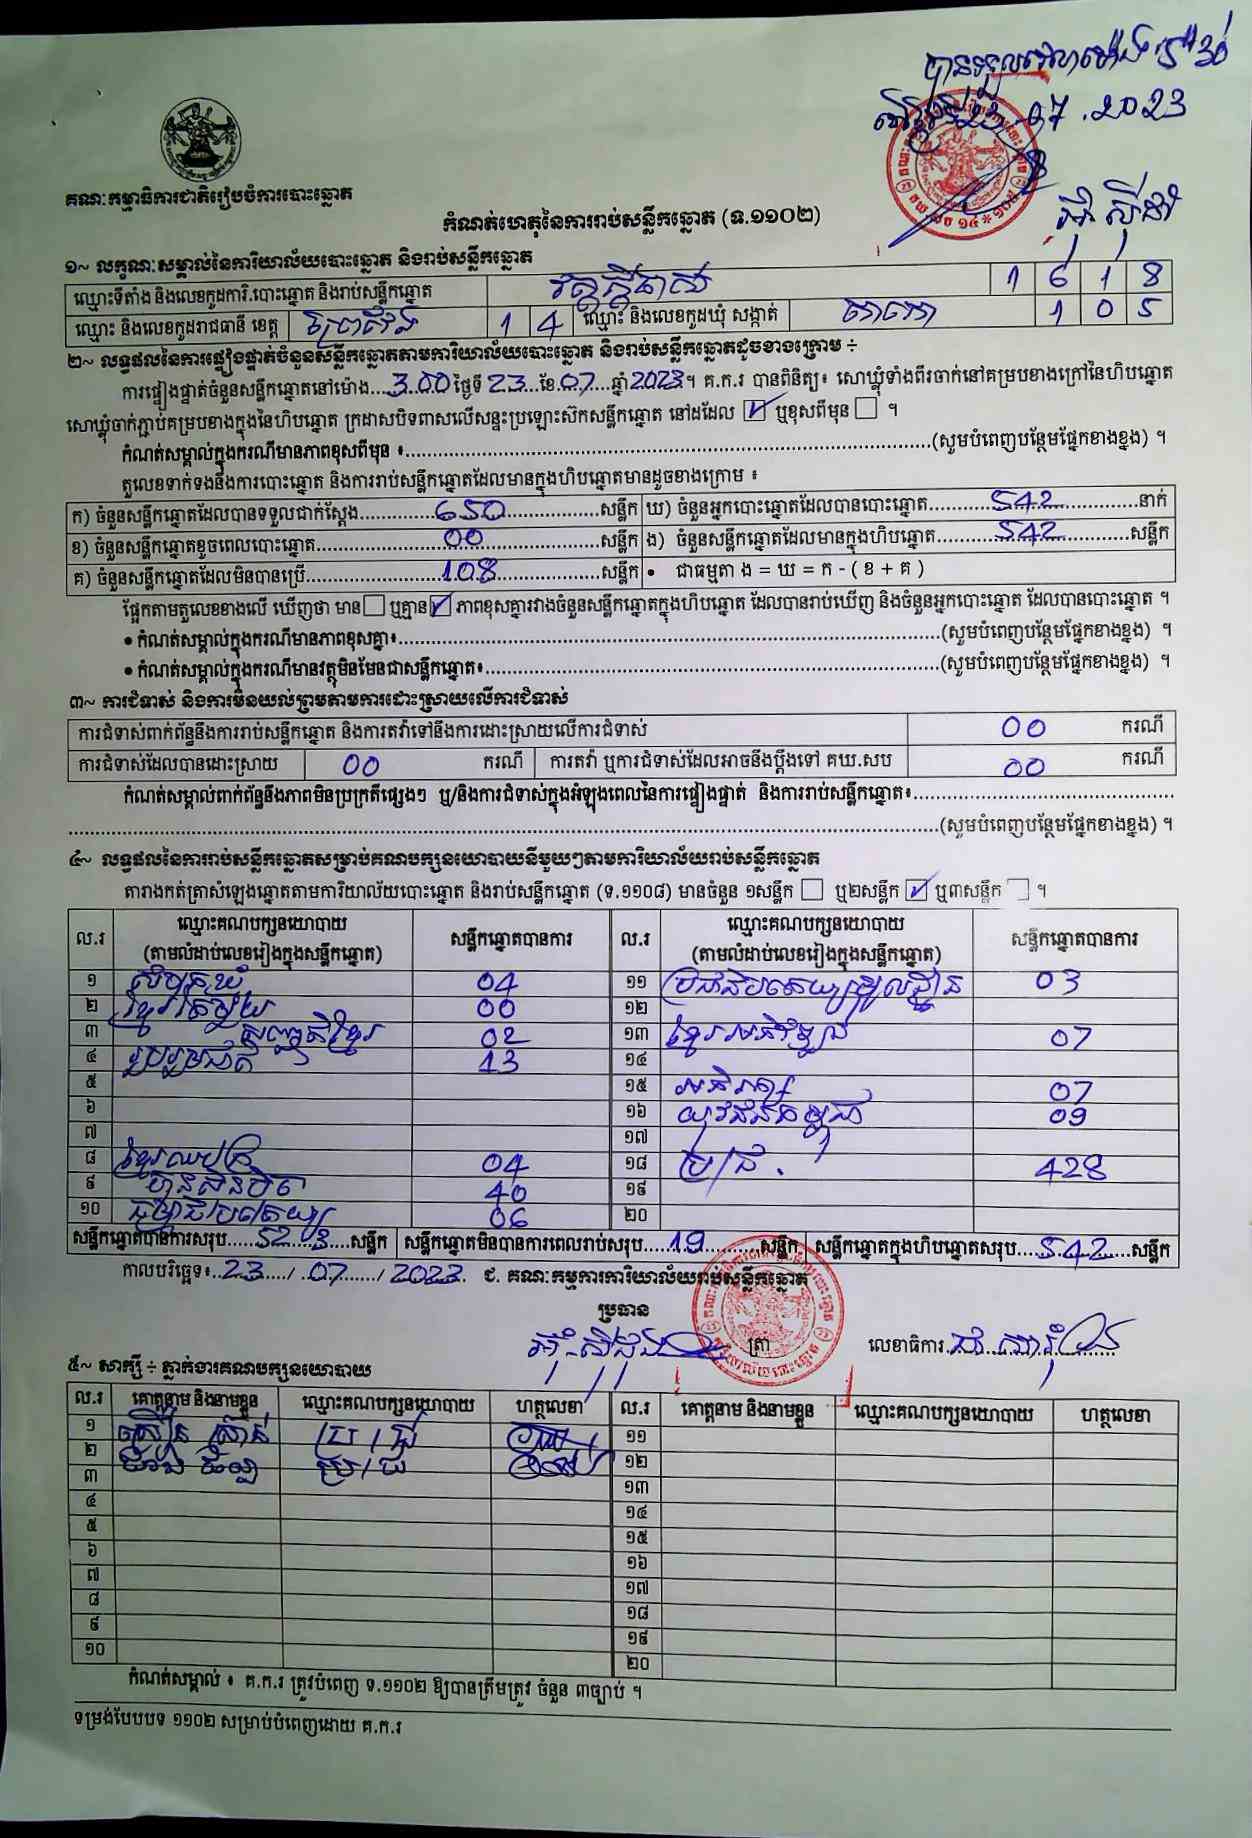 បានទទួលវេលាម៉ោង
07.2023
គណៈកម្មាធិការជាតិរៀបចំការបោះឆ្នោត
កំណត់ហេតុនៃការរាប់សន្លឹកឆ្នោត (ទ.១១០២)
១~ លក្ខណៈសម្គាល់នៃការិយាល័យបោះឆ្នោត និងរាប់សន្លឹកឆ្នោត
ឈ្មោះទីតាំង និងលេខកូដការិ.បោះឆ្នោត និងរាប់សន្លឹកឆ្នោត 1 6 1 8
ឈ្មោះ និងលេខកូដរាជធានី ខេត្ត ព្រៃវែង 1 4 ឈ្មោះ និងលេខកូដឃុំ សង្កាត់ 1 0 5
២~ លទ្ធផលនៃការផ្ទៀងផ្ទាត់ចំនួនសន្លឹកឆ្នោតតាមការិយាល័យបោះឆ្នោត និងរាប់សន្លឹកឆ្នោតដូចខាងក្រោម ÷
ការផ្ទៀងផ្ទាត់ចំនួនសន្លឹកឆ្នោតនៅម៉ោង...3.00 ថ្ងៃទី 23 ខែ 07 ឆ្នាំ 2023។ គ.ក.រ បានពិនិត្យ៖ សោឃ្លុំទាំងពីរចាក់នៅគម្របខាងក្រៅនៃហិបឆ្នោត
សោឃ្លុំចាក់ភ្ជាប់គម្របខាងក្នុងនៃហិបឆ្នោត ក្រដាសបិទពាសលើសន្ទះប្រឡោះស៊កសន្លឹកឆ្នោត នៅដដែល ☑ ឬខុសពីមុន ☐ ។
កំណត់សម្គាល់ក្នុងករណីមានភាពខុសពីមុន ៖...(សូមបំពេញបន្ថែមផ្នែកខាងខ្នង) ។
តួលេខទាក់ទងនឹងការបោះឆ្នោត និងការរាប់សន្លឹកឆ្នោតដែលមានក្នុងហិបឆ្នោតមានដូចខាងក្រោម ៖
ក) ចំនួនសន្លឹកឆ្នោតដែលបានទទួលជាក់ស្តែង...650...សន្លឹក ឃ) ចំនួនអ្នកបោះឆ្នោតដែលបានបោះឆ្នោត...542...នាក់
ខ) ចំនួនសន្លឹកឆ្នោតខូចពេលបោះឆ្នោត...00...សន្លឹក ង) ចំនួនសន្លឹកឆ្នោតដែលមានក្នុងហិបឆ្នោត...542...សន្លឹក
គ) ចំនួនសន្លឹកឆ្នោតដែលមិនបានប្រើ...108...សន្លឹក • ជាធម្មតា ង = ឃ = ក - ( ខ + គ )
ផ្អែកតាមតួលេខខាងលើ ឃើញថា មាន ☐ ឬគ្មាន ☑ ភាពខុសគ្នារវាងចំនួនសន្លឹកឆ្នោតក្នុងហិបឆ្នោត ដែលបានរាប់ឃើញ និងចំនួនអ្នកបោះឆ្នោត ដែលបានបោះឆ្នោត ។
• កំណត់សម្គាល់ក្នុងករណីមានភាពខុសគ្នា៖...(សូមបំពេញបន្ថែមផ្នែកខាងខ្នង) ។
• កំណត់សម្គាល់ក្នុងករណីមានវត្ថុមិនមែនជាសន្លឹកឆ្នោត៖...(សូមបំពេញបន្ថែមផ្នែកខាងខ្នង) ។
៣~ ការជំទាស់ និងការមិនយល់ព្រមតាមការដោះស្រាយលើការជំទាស់
ការជំទាស់ពាក់ព័ន្ធនឹងការរាប់សន្លឹកឆ្នោត និងការតវ៉ាទៅនឹងការដោះស្រាយលើការជំទាស់ 00 ករណី
ការជំទាស់ដែលបានដោះស្រាយ 00 ករណី ការតវ៉ា ឬការជំទាស់ដែលអាចនឹងប្តឹងទៅ គឃ.សប 00 ករណី
កំណត់សម្គាល់ពាក់ព័ន្ធនឹងភាពមិនប្រក្រតីផ្សេងៗ ឬ/និងការជំទាស់ក្នុងអំឡុងពេលនៃការផ្ទៀងផ្ទាត់ និងការរាប់សន្លឹកឆ្នោត៖...
...(សូមបំពេញបន្ថែមផ្នែកខាងខ្នង) ។
៤~ លទ្ធផលនៃការរាប់សន្លឹកឆ្នោតសម្រាប់គណបក្សនយោបាយនីមួយៗតាមការិយាល័យរាប់សន្លឹកឆ្នោត
តារាងកត់ត្រាសំឡេងឆ្នោតតាមការិយាល័យបោះឆ្នោត និងរាប់សន្លឹកឆ្នោត (ទ.១១០៨) មានចំនួន ១សន្លឹក ☐ ឬ២សន្លឹក ☑ ឬ៣សន្លឹក ☐ ។
ល.រ ឈ្មោះគណបក្សនយោបាយ (តាមលំដាប់លេខរៀងក្នុងសន្លឹកឆ្នោត) សន្លឹកឆ្នោតបានការ ល.រ ឈ្មោះគណបក្សនយោបាយ (តាមលំដាប់លេខរៀងក្នុងសន្លឹកឆ្នោត) សន្លឹកឆ្នោតបានការ
១ 04 ១១ ប្រជាធិបតេយ្យមូលដ្ឋាន 03
២ ខ្មែរតែមួយ 00 ១២
៣ សញ្ជាតិខ្មែរ 02 ១៣ ខ្មែរអភិវឌ្ឍន៍ 07
៤ រួបរួមជាតិ 13 ១៤
៥ ១៥ 07
៦ ១៦ យុវជនកម្ពុជា 09
៧ ១៧
៨ ខ្មែរឈប់ក្រ 04 ១៨ ប្រ/ជ. 428
៩ ហ្វ៊ុនស៊ិនប៉ិច 40 ១៩
១០ ធម្មាធិបតេយ្យ 06 ២០
សន្លឹកឆ្នោតបានការសរុប...523...សន្លឹក សន្លឹកឆ្នោតមិនបានការពេលរាប់សរុប...19...សន្លឹក សន្លឹកឆ្នោតក្នុងហិបឆ្នោតសរុប...542...សន្លឹក
កាលបរិច្ឆេទ៖ 23 / 07 / 2023. ជ. គណៈកម្មការការិយាល័យរាប់សន្លឹកឆ្នោត
ប្រធាន
ត្រា លេខាធិការ
៥~ សាក្សី ÷ ភ្នាក់ងារគណបក្សនយោបាយ
ល.រ គោត្តនាម និងនាមខ្លួន ឈ្មោះគណបក្សនយោបាយ ហត្ថលេខា ល.រ គោត្តនាម និងនាមខ្លួន ឈ្មោះគណបក្សនយោបាយ ហត្ថលេខា
១ ប្រ/ជ ១១
២ ប្រ/ជ ១២
៣ ១៣
៤ ១៤
៥ ១៥
៦ ១៦
៧ ១៧
៨ ១៨
៩ ១៩
១០ ២០
កំណត់សម្គាល់ ៖ គ.ក.រ ត្រូវបំពេញ ទ.១១០២ ឱ្យបានត្រឹមត្រូវ ចំនួន ៣ច្បាប់ ។
ទម្រង់បែបបទ ១១០២ សម្រាប់បំពេញដោយ គ.ក.រ